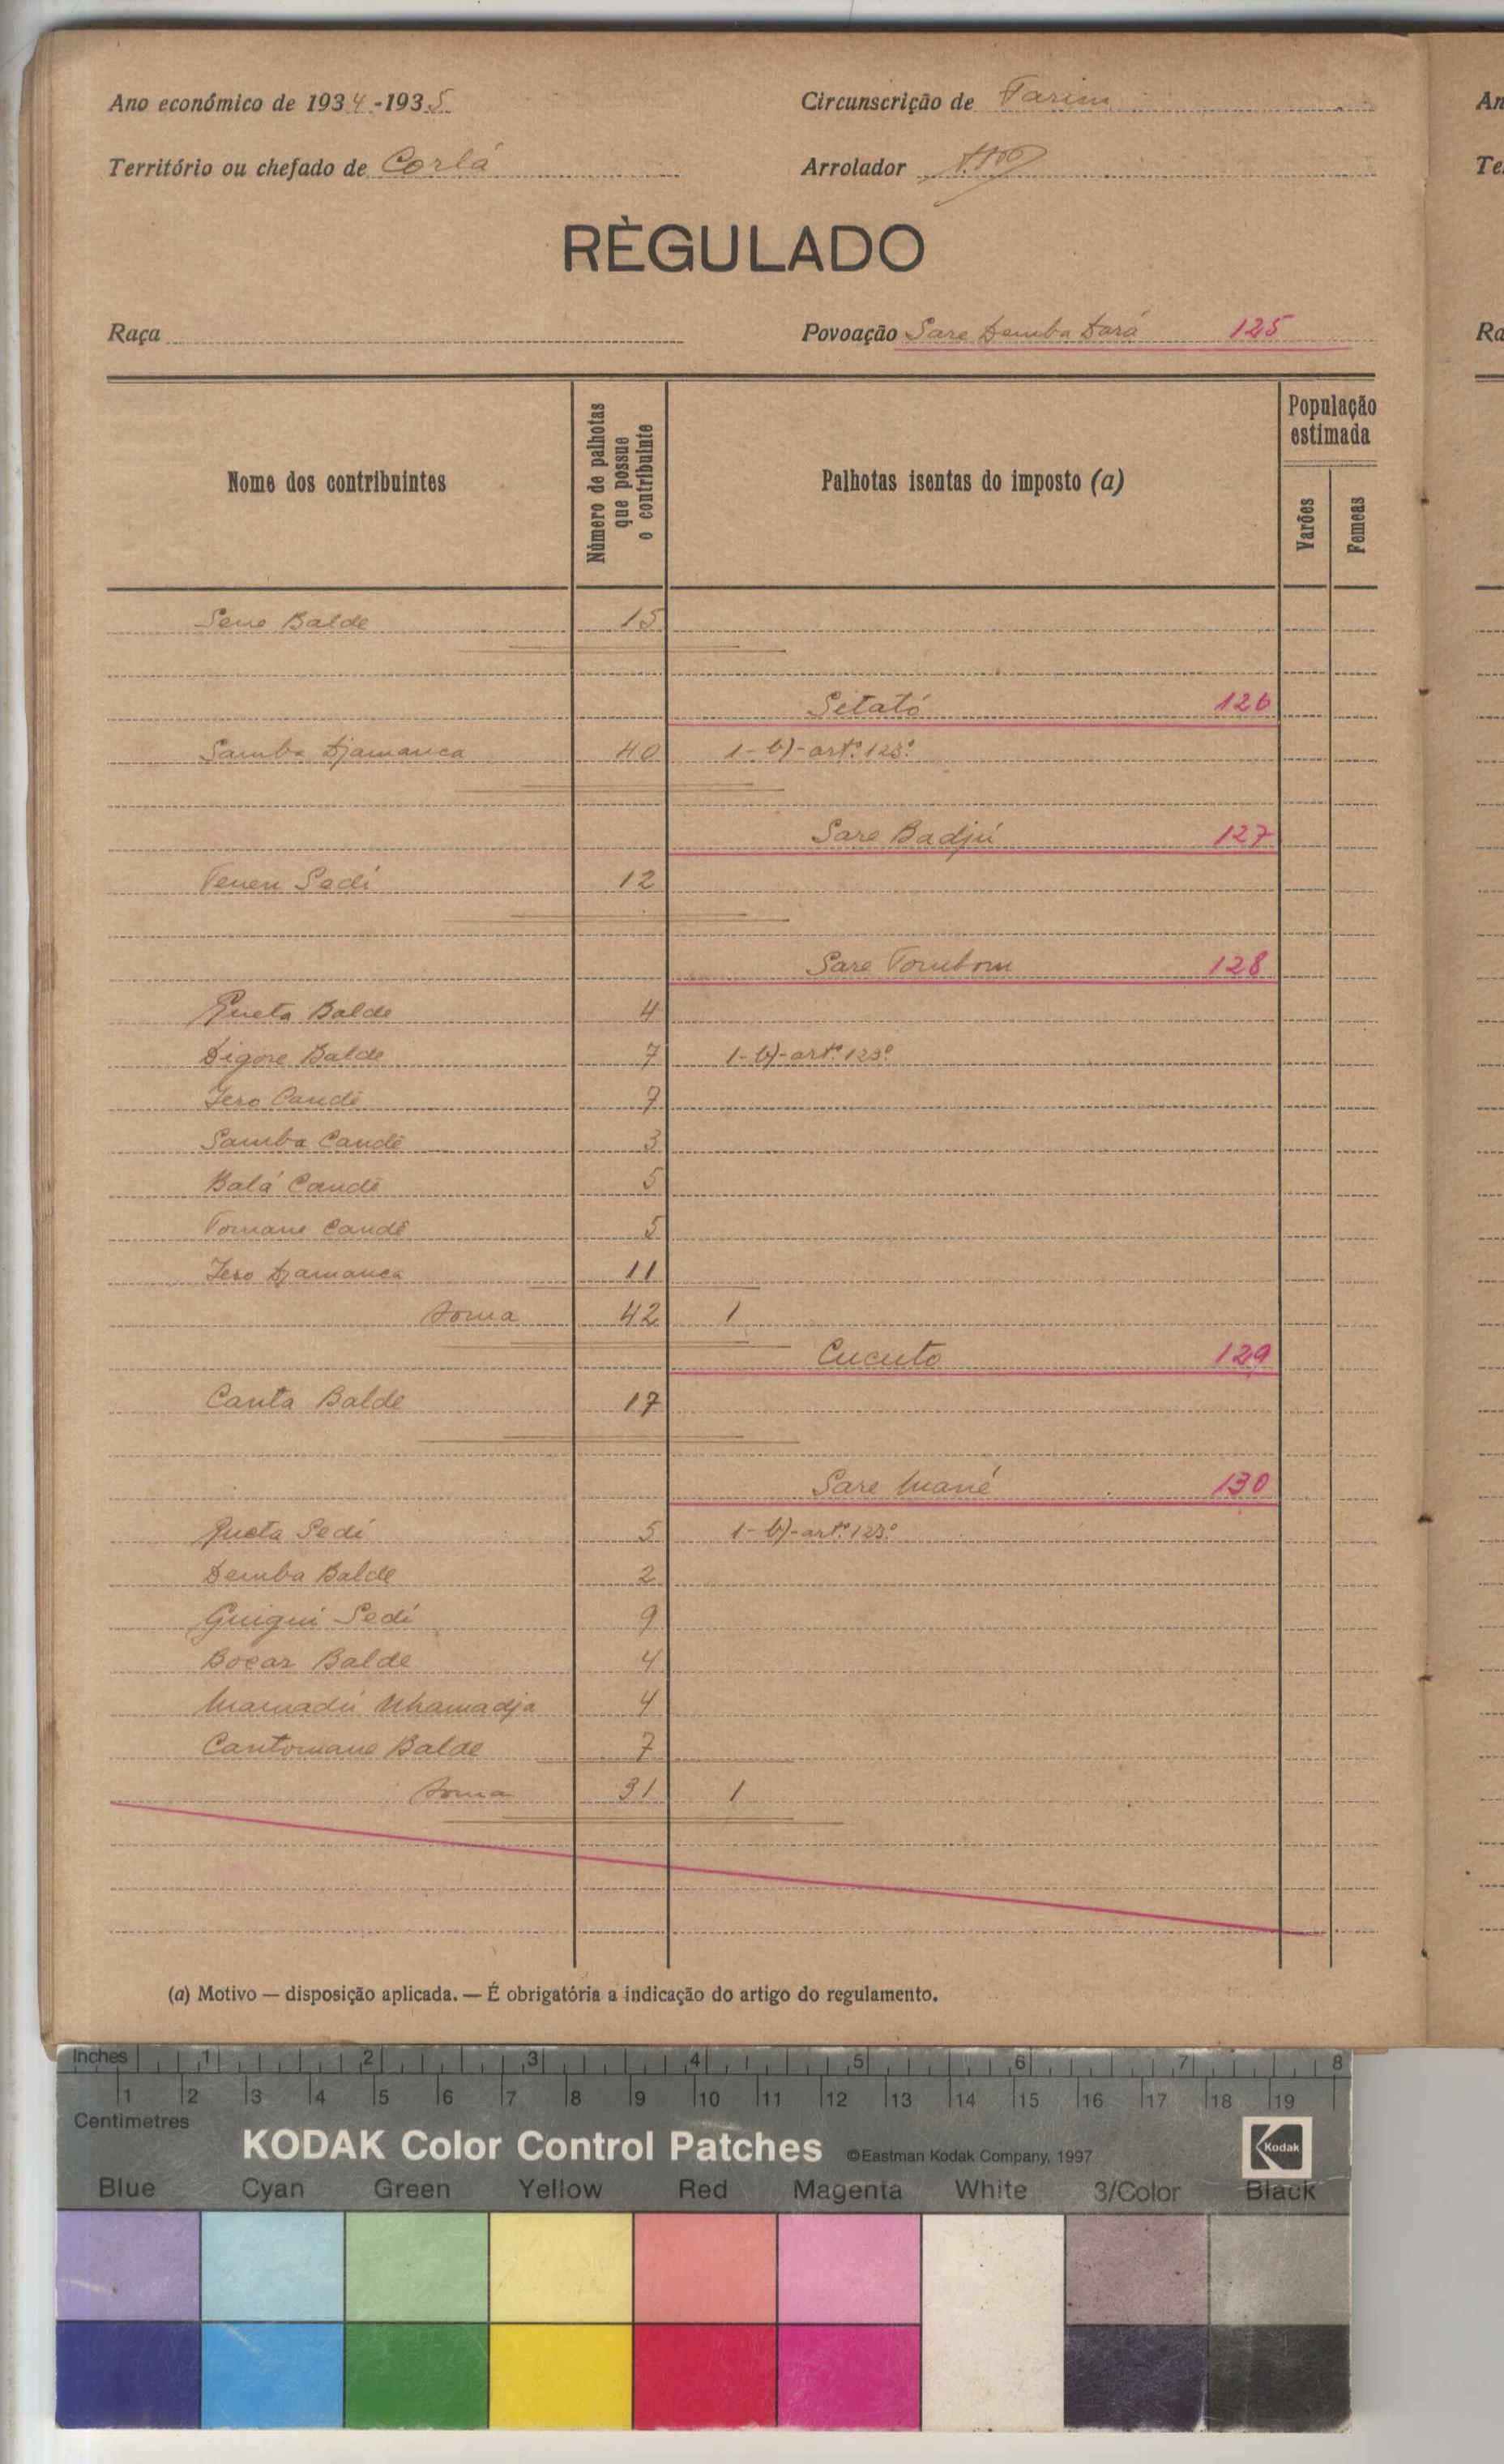 Ano económico de 1934-1935 Circunscrição de Farim
Território ou chefado de Corlá Arrolador
RÈGULADO
Raça Povoação Sare Demba Dará 125
Nome dos contribuintes
Número de palhotas que possue o contribuinte
Palhotas isentas do imposto (a)
População estimada
Varões
Femeas
Seno Balde 15
Setató 126
Samba Djamanca 40 1-b)-artº. 123º
Sare Badjú 127
Tenen Sedi 12
Sare Tombom 128
Queta Balde 4
Digore Balde 7 1-b)-artº. 123º
Iero Candé 7
Samba Candé 3
Balá Candé 5
Tomane Candé 5
Iero Djamanca 11
Soma 42 1
Cucuto 129
Canta Balde 17
Sare Mané 130
Queta Sedi 5 1-b)-artº. 123º
Demba Balde 2
Guigui Sedi 9
Bocar Balde 4
Mamadú Nhamadja 4
Cantomane Balde 7
Soma 31 1
(a) Motivo — disposição aplicada. — É obrigatória a indicação do artigo do regulamento.
An
Te
Ra
Inches 1 2 3 4 5 6 7 8
1 2 3 4 5 6 7 8 9 10 11 12 13 14 15 16 17 18 19
Centimetres
KODAK Color Control Patches ©Eastman Kodak Company, 1997 Kodak
Blue Cyan Green Yellow Red Magenta White 3/Color Black